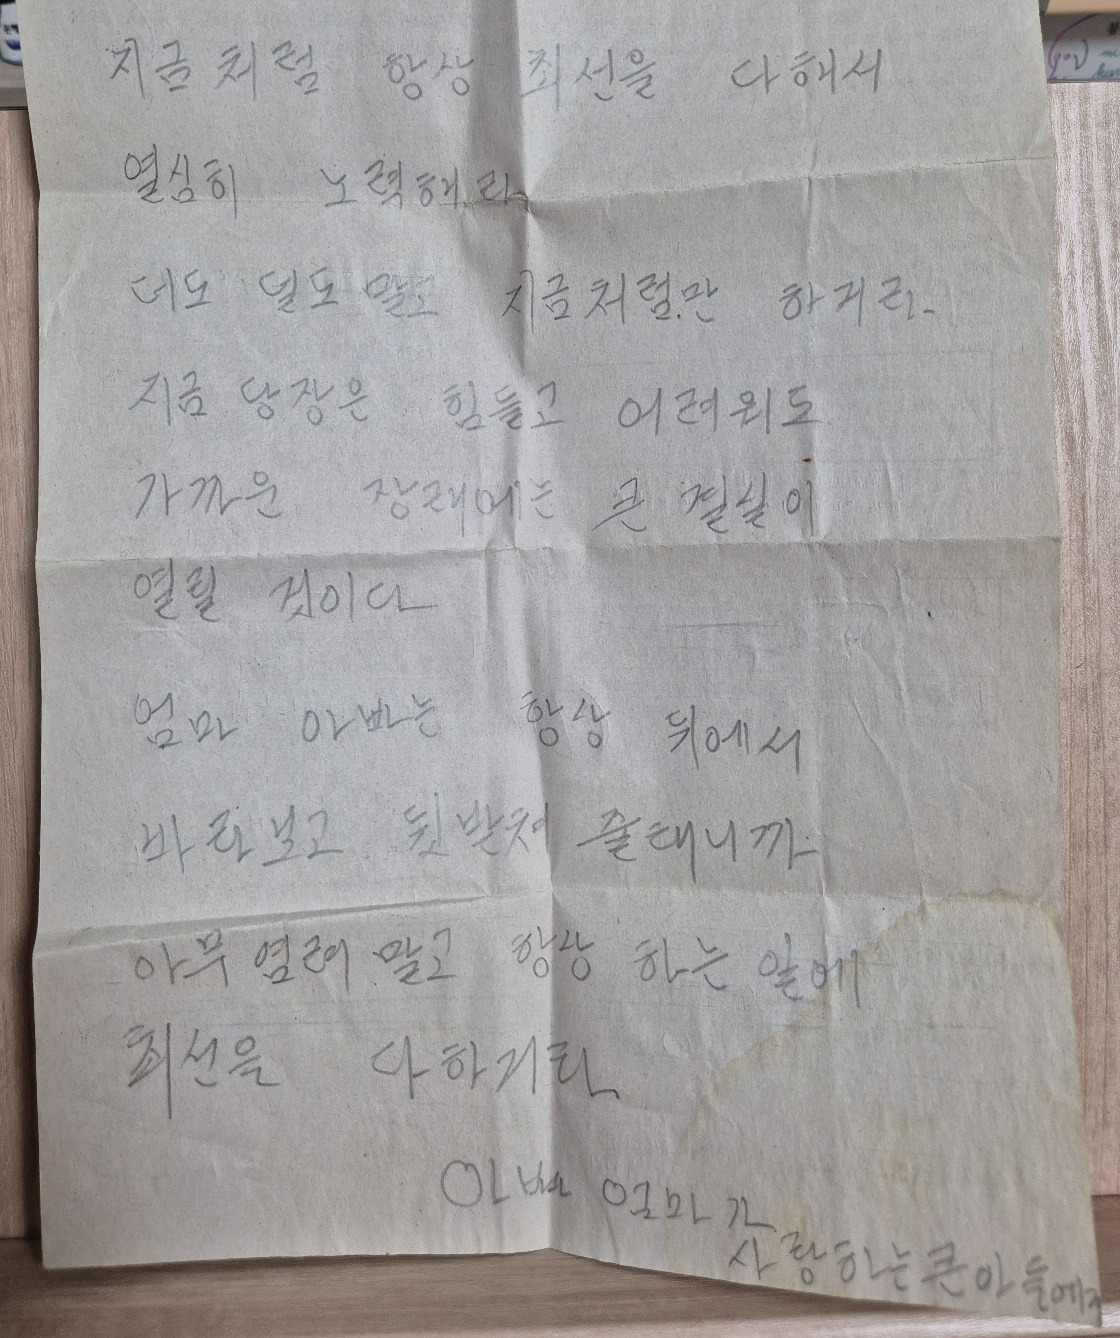 지금 처럼 항상 최선을 다해서
열심히 노력해라
더도 덜도 말고 지금처럼만 하거라.
지금 당장은 힘들고 어려워도
가까운 장래에는 큰 결실이
열릴 것이다
엄마 아빠는 항상 뒤에서
바라보고 뒷받쳐 줄테니까
아무 염려 말고 항상 하는 일에
최선을 다하거라
아빠 엄마가
사랑하는 큰아들에게